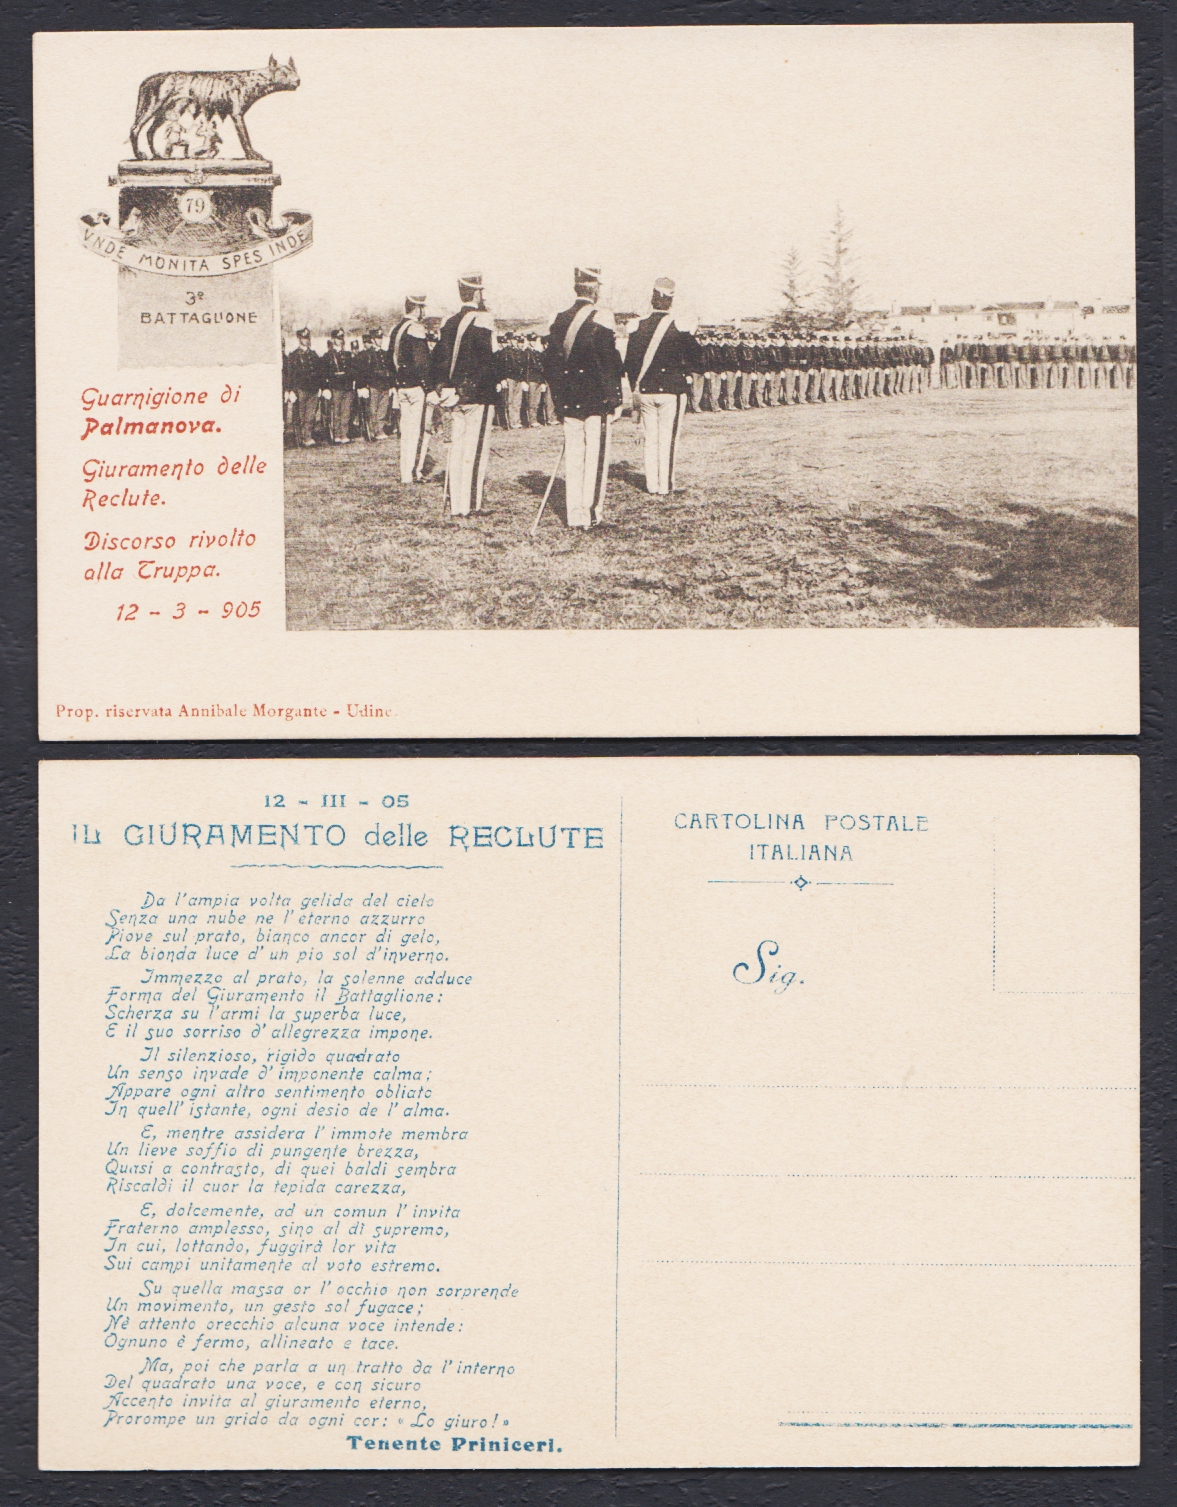 79
VNDE MONITA SPES INDE
3º
BATTAGLIONE
Guarnigione di
Palmanova.
Giuramento delle
Reclute.
Discorso rivolto
alla Truppa.
12 - 3 - 905
Prop. riservata Annibale Morgante - Udine.
12 - III - 05
IL GIURAMENTO delle RECLUTE
Da l'ampia volta gelida del cielo
Senza una nube ne l'eterno azzurro
Piove sul prato, bianco ancor di gelo,
La bionda luce d'un pio sol d'inverno.
Immezzo al prato, la solenne adduce
Forma del Giuramento il Battaglione:
Scherza su l'armi la superba luce,
E il suo sorriso d'allegrezza impone.
Il silenzioso, rigido quadrato
Un senso invade d'imponente calma;
Appare ogni altro sentimento obliato
In quell'istante, ogni desio de l'alma.
E, mentre assidera l'immote membra
Un lieve soffio di pungente brezza,
Quasi a contrasto, di quei baldi sembra
Riscaldi il cuor la tepida carezza,
E, dolcemente, ad un comun l'invita
Fraterno amplesso, sino al dì supremo,
In cui, lottando, fuggirà lor vita
Sui campi unitamente al voto estremo.
Su quella massa or l'occhio non sorprende
Un movimento, un gesto sol fugace;
Nè attento orecchio alcuna voce intende:
Ognuno è fermo, allineato e tace.
Ma, poi che parla a un tratto da l'interno
Del quadrato una voce, e con sicuro
Accento invita al giuramento eterno,
Prorompe un grido da ogni cor: « Lo giuro! »
Tenente Priniceri.
CARTOLINA POSTALE
ITALIANA
Sig.